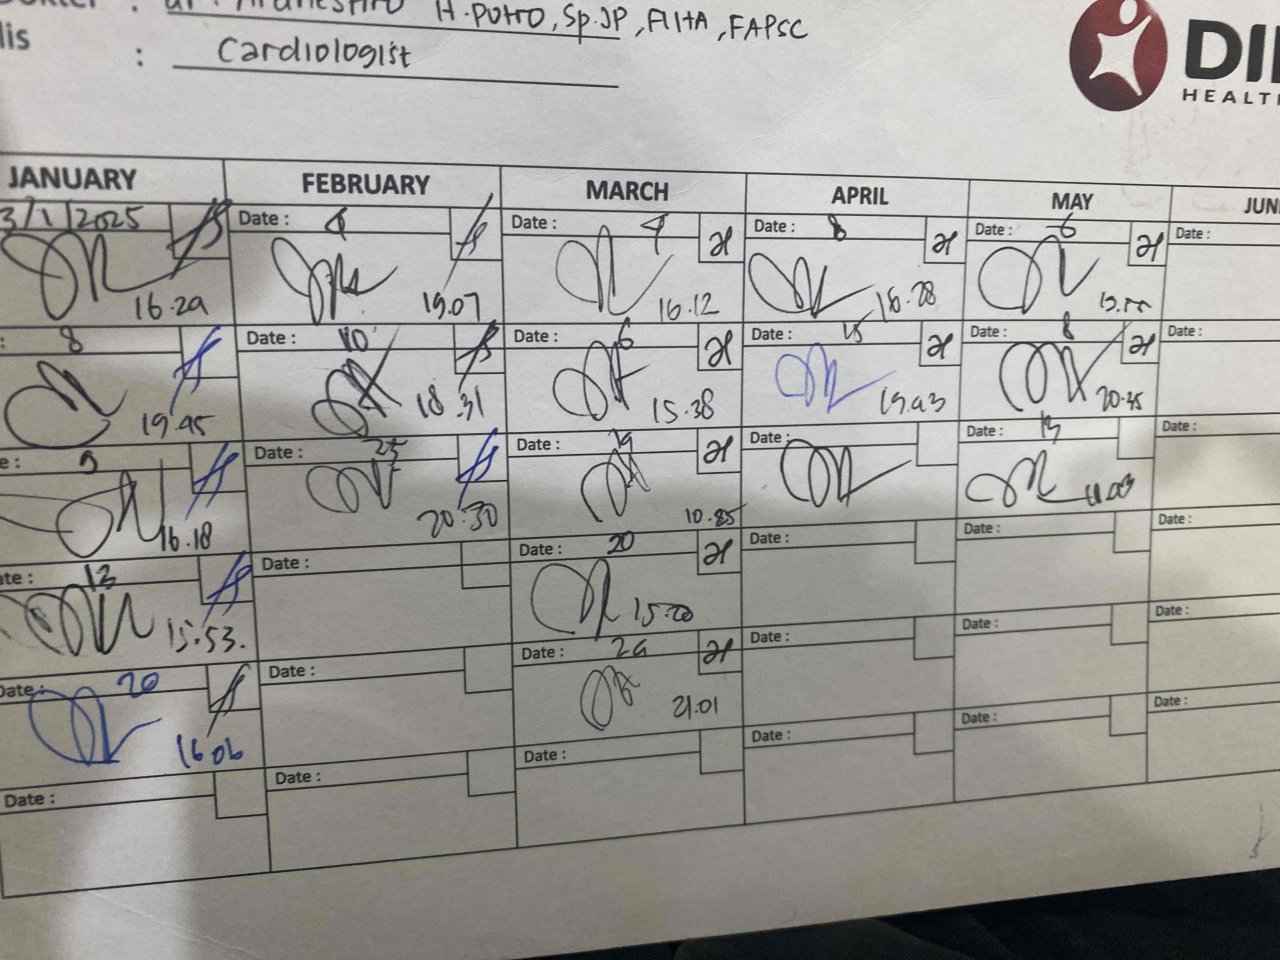 H. Putro, Sp.JP, FIHA, FAPSC
lis : Cardiologist
DI
HEALT
JANUARY FEBRUARY MARCH APRIL MAY JUN
3/1/2025 Date : 4 Date : 4 Date : 8 Date : 6 Date :
16.29 19.07 16.12 16.28
: 8 Date : 10 Date : 6 Date : 15 Date : 8 Date :
19.45 18.31 15.38 19.43 20.45
e : 9 Date : 25 Date : 19 Date : Date : 13 Date :
16.18 20.30 10.85
ate : 13 Date : Date : 20 Date : Date : Date :
15.53. 15.20
Date : 20 Date : Date : 24 Date : Date : Date :
16.06 21.01
Date : Date : Date : Date : Date : Date :